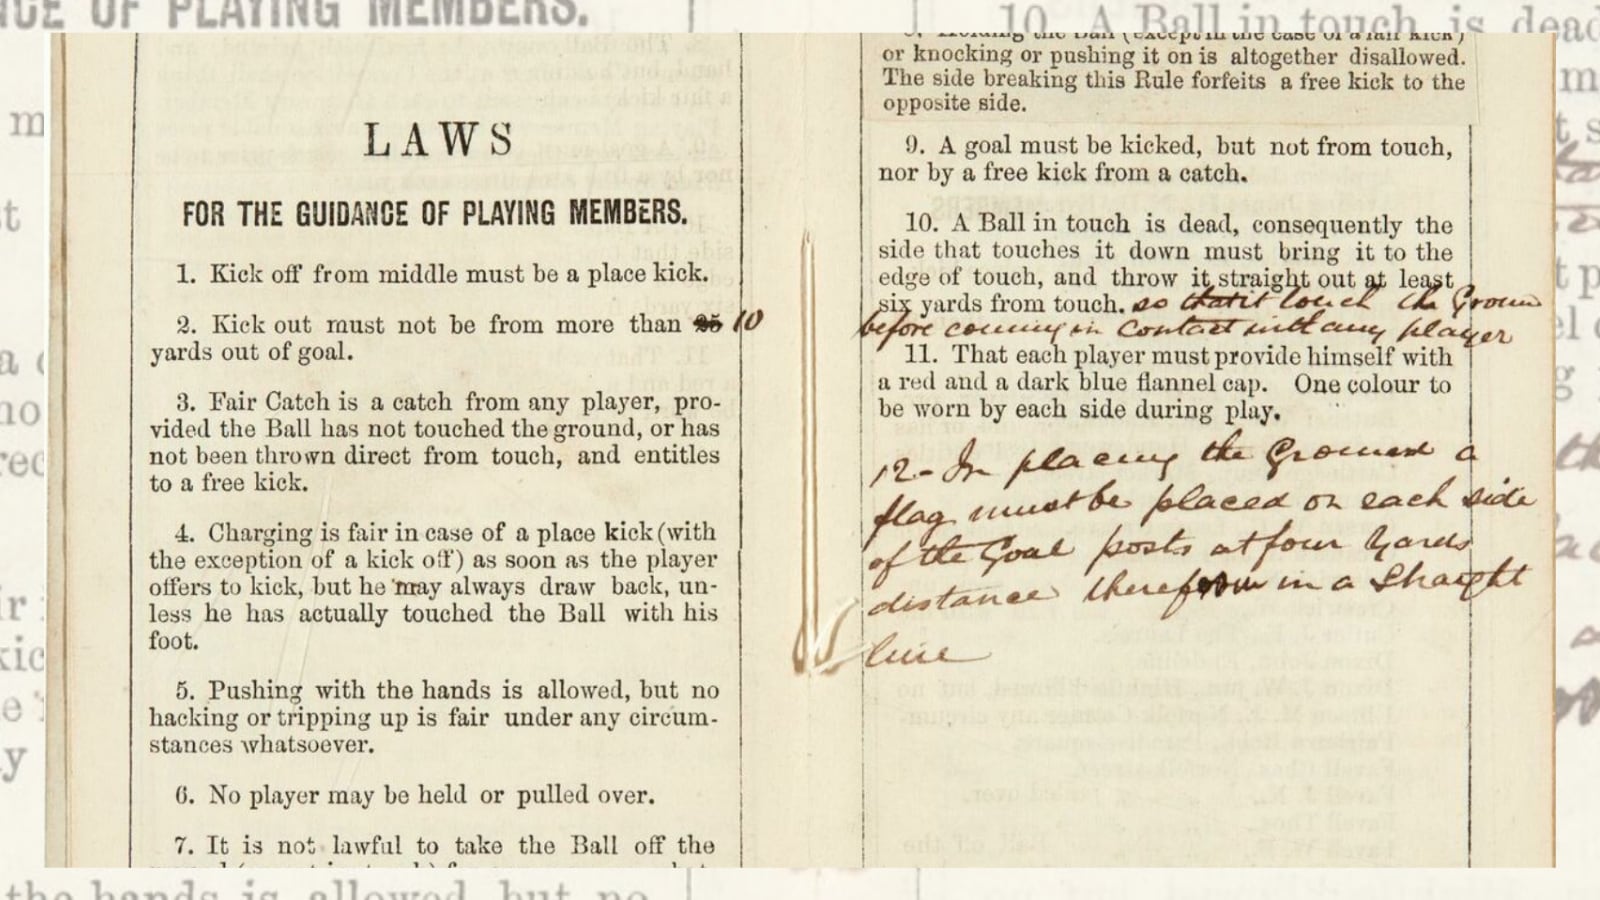 LAWS
FOR THE GUIDANCE OF PLAYING MEMBERS.
1. Kick off from middle must be a place kick.
2. Kick out must not be from more than 25 10
yards out of goal.
3. Fair Catch is a catch from any player, pro-
vided the Ball has not touched the ground, or has
not been thrown direct from touch, and entitles
to a free kick.
4. Charging is fair in case of a place kick (with
the exception of a kick off) as soon as the player
offers to kick, but he may always draw back, un-
less he has actually touched the Ball with his
foot.
5. Pushing with the hands is allowed, but no
hacking or tripping up is fair under any circum-
stances whatsoever.
6. No player may be held or pulled over.
7. It is not lawful to take the Ball off the
8. Holding the Ball (except in the case of a fair kick)
or knocking or pushing it on is altogether disallowed.
The side breaking this Rule forfeits a free kick to the
opposite side.
9. A goal must be kicked, but not from touch,
nor by a free kick from a catch.
10. A Ball in touch is dead, consequently the
side that touches it down must bring it to the
edge of touch, and throw it straight out at least
six yards from touch. so that it touch the Ground
before coming in contact with any player
11. That each player must provide himself with
a red and a dark blue flannel cap. One colour to
be worn by each side during play.
12- In placing the Ground a
flag must be placed on each side
of the Goal posts at four Yards
distance therefrom in a Straight
line